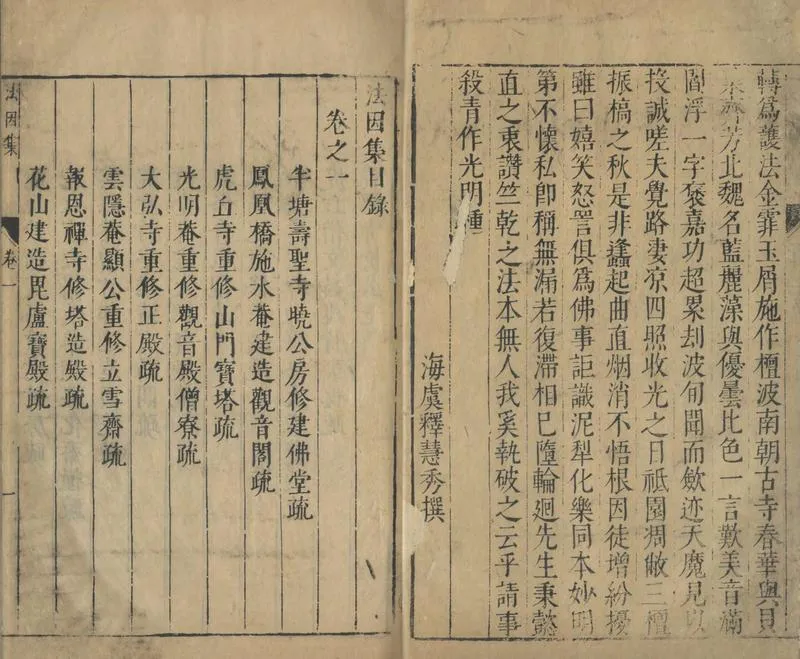 轉爲護法金霏玉屑施作檀波南朝古寺春華與貝
芳北魏名藍麗藻與優曇比色一言歎美音滿
閻浮一字褒嘉功超累刦波旬聞而歛迹天魔見以
投誠嗟夫覺路妻凉四照收光之日祗園凋敝三檀
振槁之秋是非蠭起曲直烟消不悟根因徒增紛擾
雖曰嬉笑怒詈俱爲佛事詎識泥犁化樂同本妙明
第不懷私卽稱無漏若復滯相巳墮輪迴先生秉懿
直之衷讚竺乾之法本無人我奚執破之云乎請事
殺青作光明種
海虞釋慧秀撰
法因集目錄
卷之一
半塘壽聖寺曉公房修建佛堂疏
鳳凰橋施水菴建造觀音閣疏
虎丘寺重修山門寶塔疏
光明菴重修觀音殿僧寮疏
大弘寺重修正殿疏
雲隱菴顯公重修立雪齋疏
報恩禪寺修塔造殿疏
花山建造毘盧寶殿疏
法因集
卷一
一